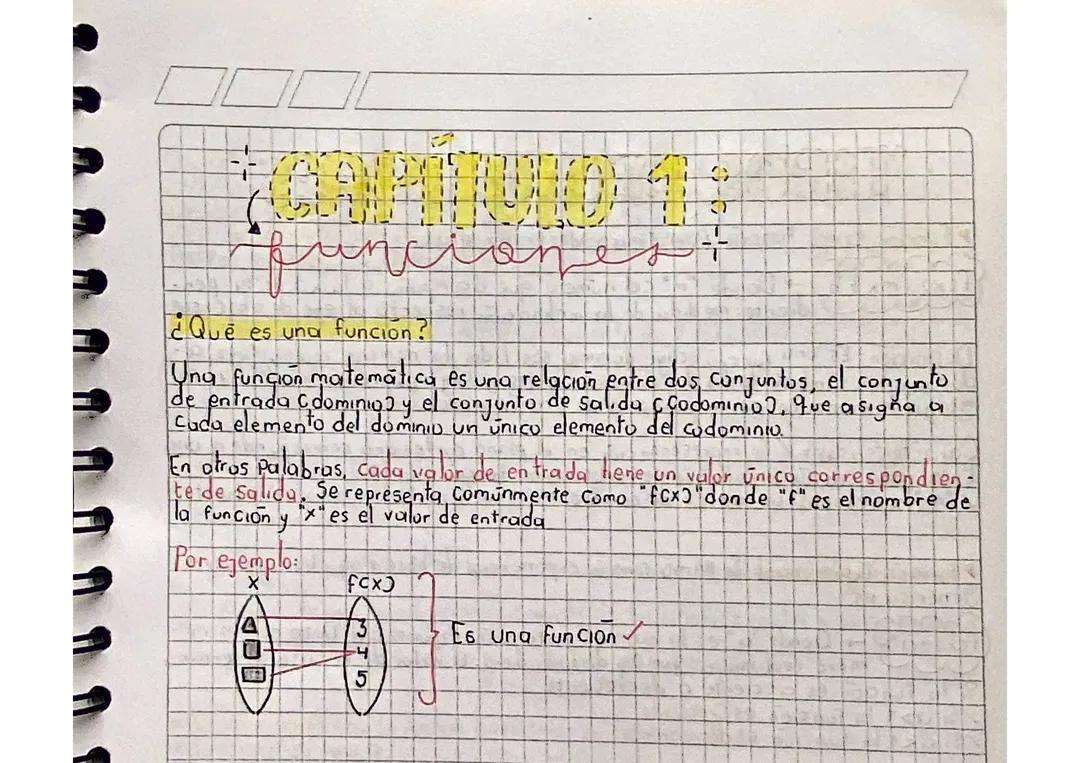 CAPÍTULO 1:
funciones
¿Qué es una función?
Una función matemática es una relación entre dos conjuntos, el conjunto
de entrada (dominio) y el conjunto de salida (codominio), que asigna a
cada elemento del dominio un único elemento del codominio.
En otras palabras, cada valor de entrada tiene un valor único correspondien-
te de salida. Se representa comúnmente como "f(x)" donde "f" es el nombre de
la función y "x" es el valor de entrada
Por ejemplo:
x f(x)
3
Es una función ✓
4
5